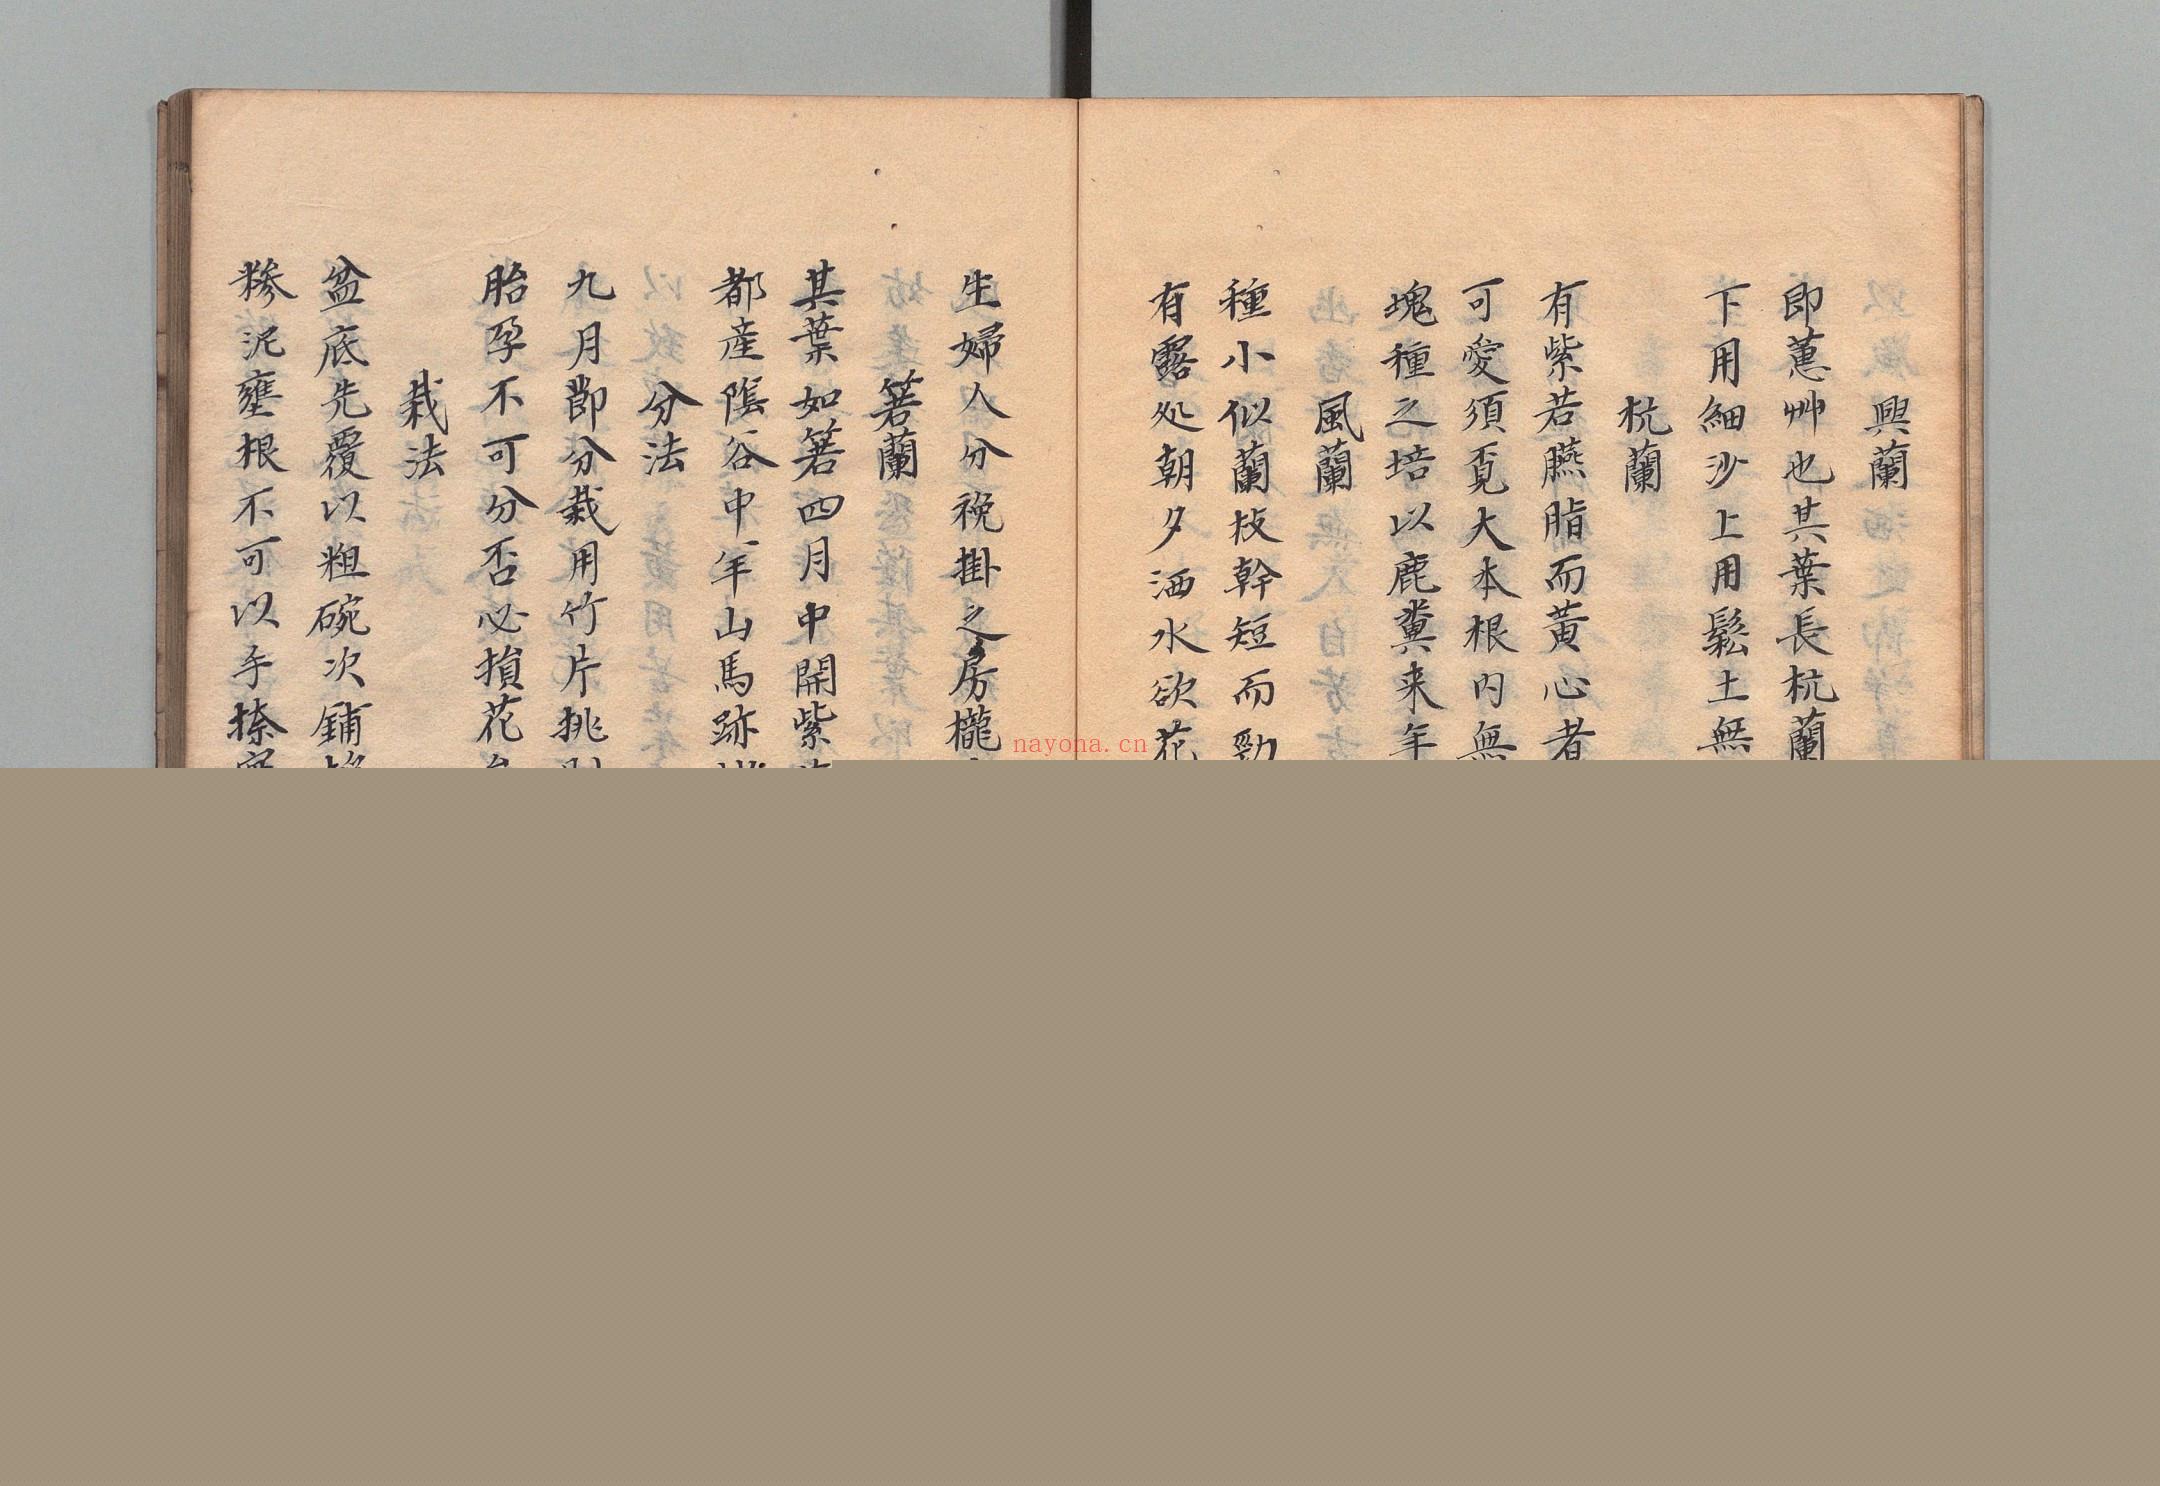 興蘭
即蕙艸也其葉長杭蘭
下用細沙上用鬆土無
杭蘭
有紫若臙脂而黃心者
可愛須覓大本根內無
塊種之培以鹿糞来年
風蘭
種小似蘭枝幹短而勁
有露処朝夕洒水欲花
生婦人分娩掛之房櫳
箬蘭
其葉如箬四月中開紫
都産陰谷中羊山馬跡
分法
九月節分栽用竹片挑
胎孕不可分否必損花
栽法
盆底先覆以粗碗次鋪
糝泥壅根不可以手捺
nayona.cn